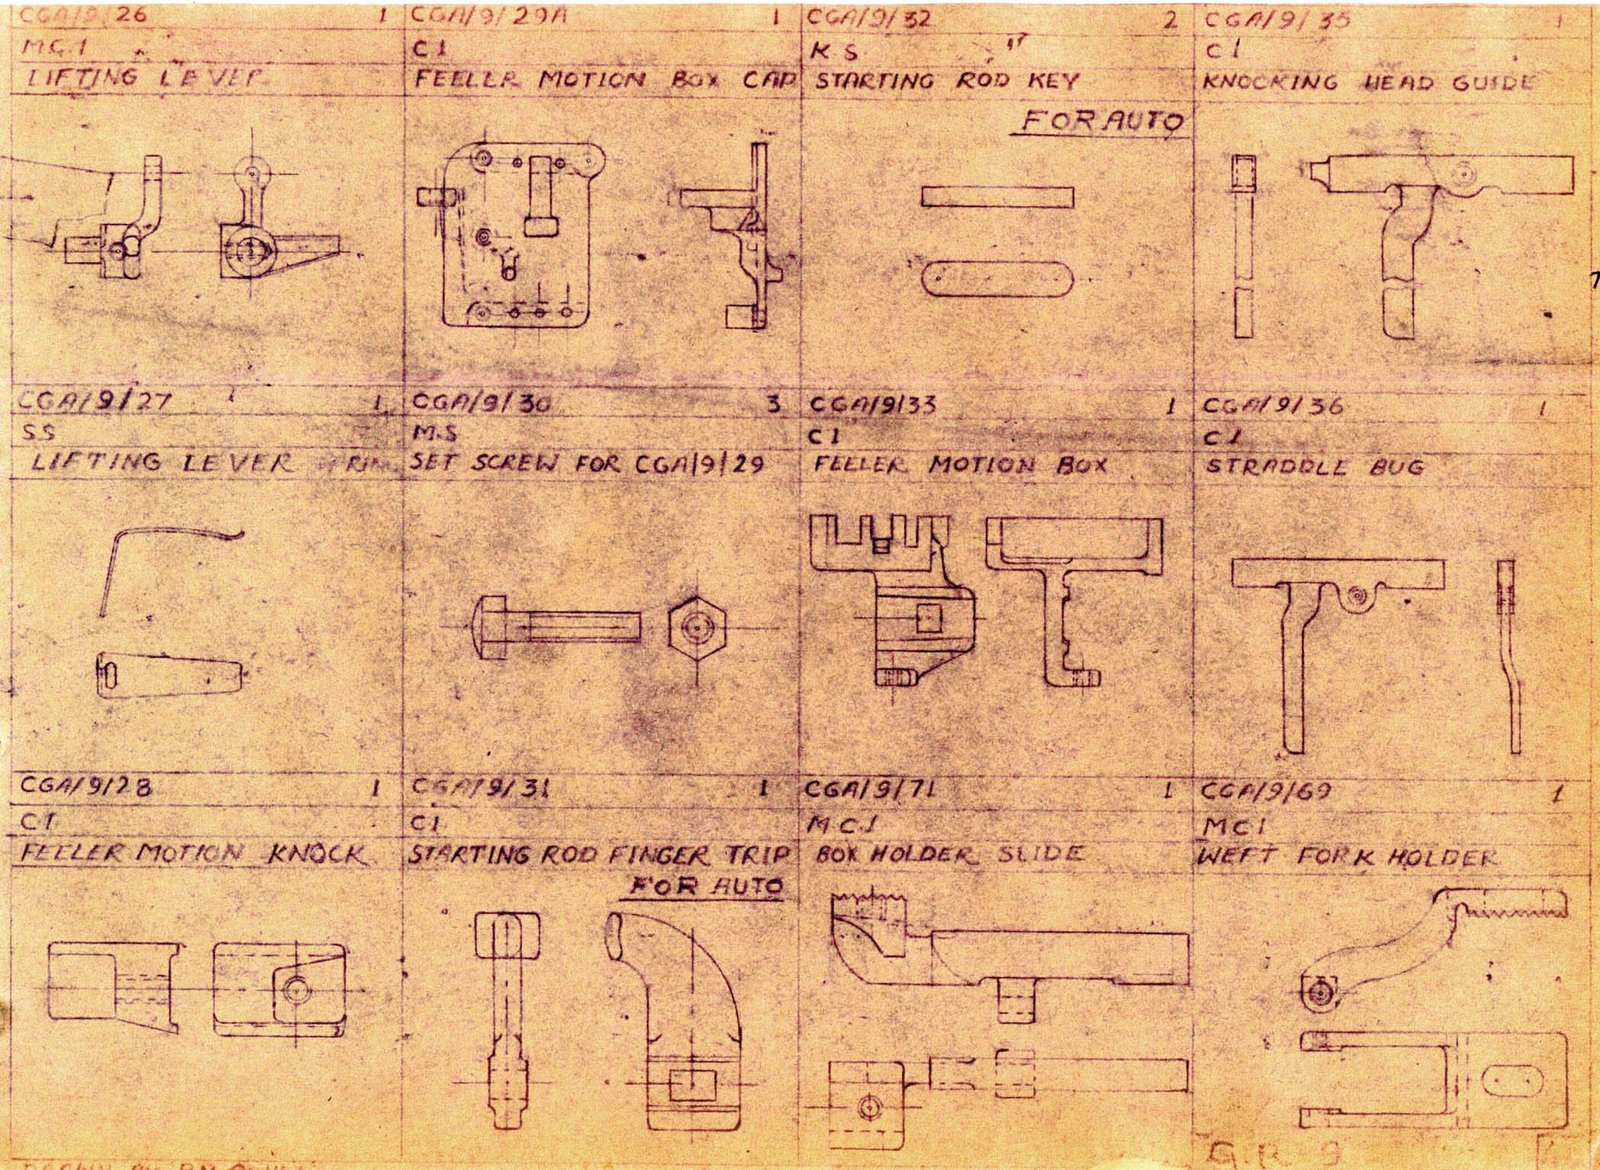 CGA/9/26 1
M.C.I
LIFTING LEVER
CGA/9/29A 1
C I
FEELER MOTION BOX CAP
CGA/9/32 2
K S
STARTING ROD KEY
FOR AUTO
CGA/9/35 1
C I
KNOCKING HEAD GUIDE
CGA/9/27 1
S S
LIFTING LEVER
CGA/9/30 3
M.S
SET SCREW FOR CGA/9/29
CGA/9/33 1
C I
FEELER MOTION BOX
CGA/9/36 1
C I
STRADDLE BUG
CGA/9/28 1
C I
FEELER MOTION KNOCK
CGA/9/31 1
C I
STARTING ROD FINGER TRIP
FOR AUTO
CGA/9/71 1
M C.I
BOX HOLDER SLIDE
CGA/9/69 1
M C I
WEFT FORK HOLDER
DRAWN BY